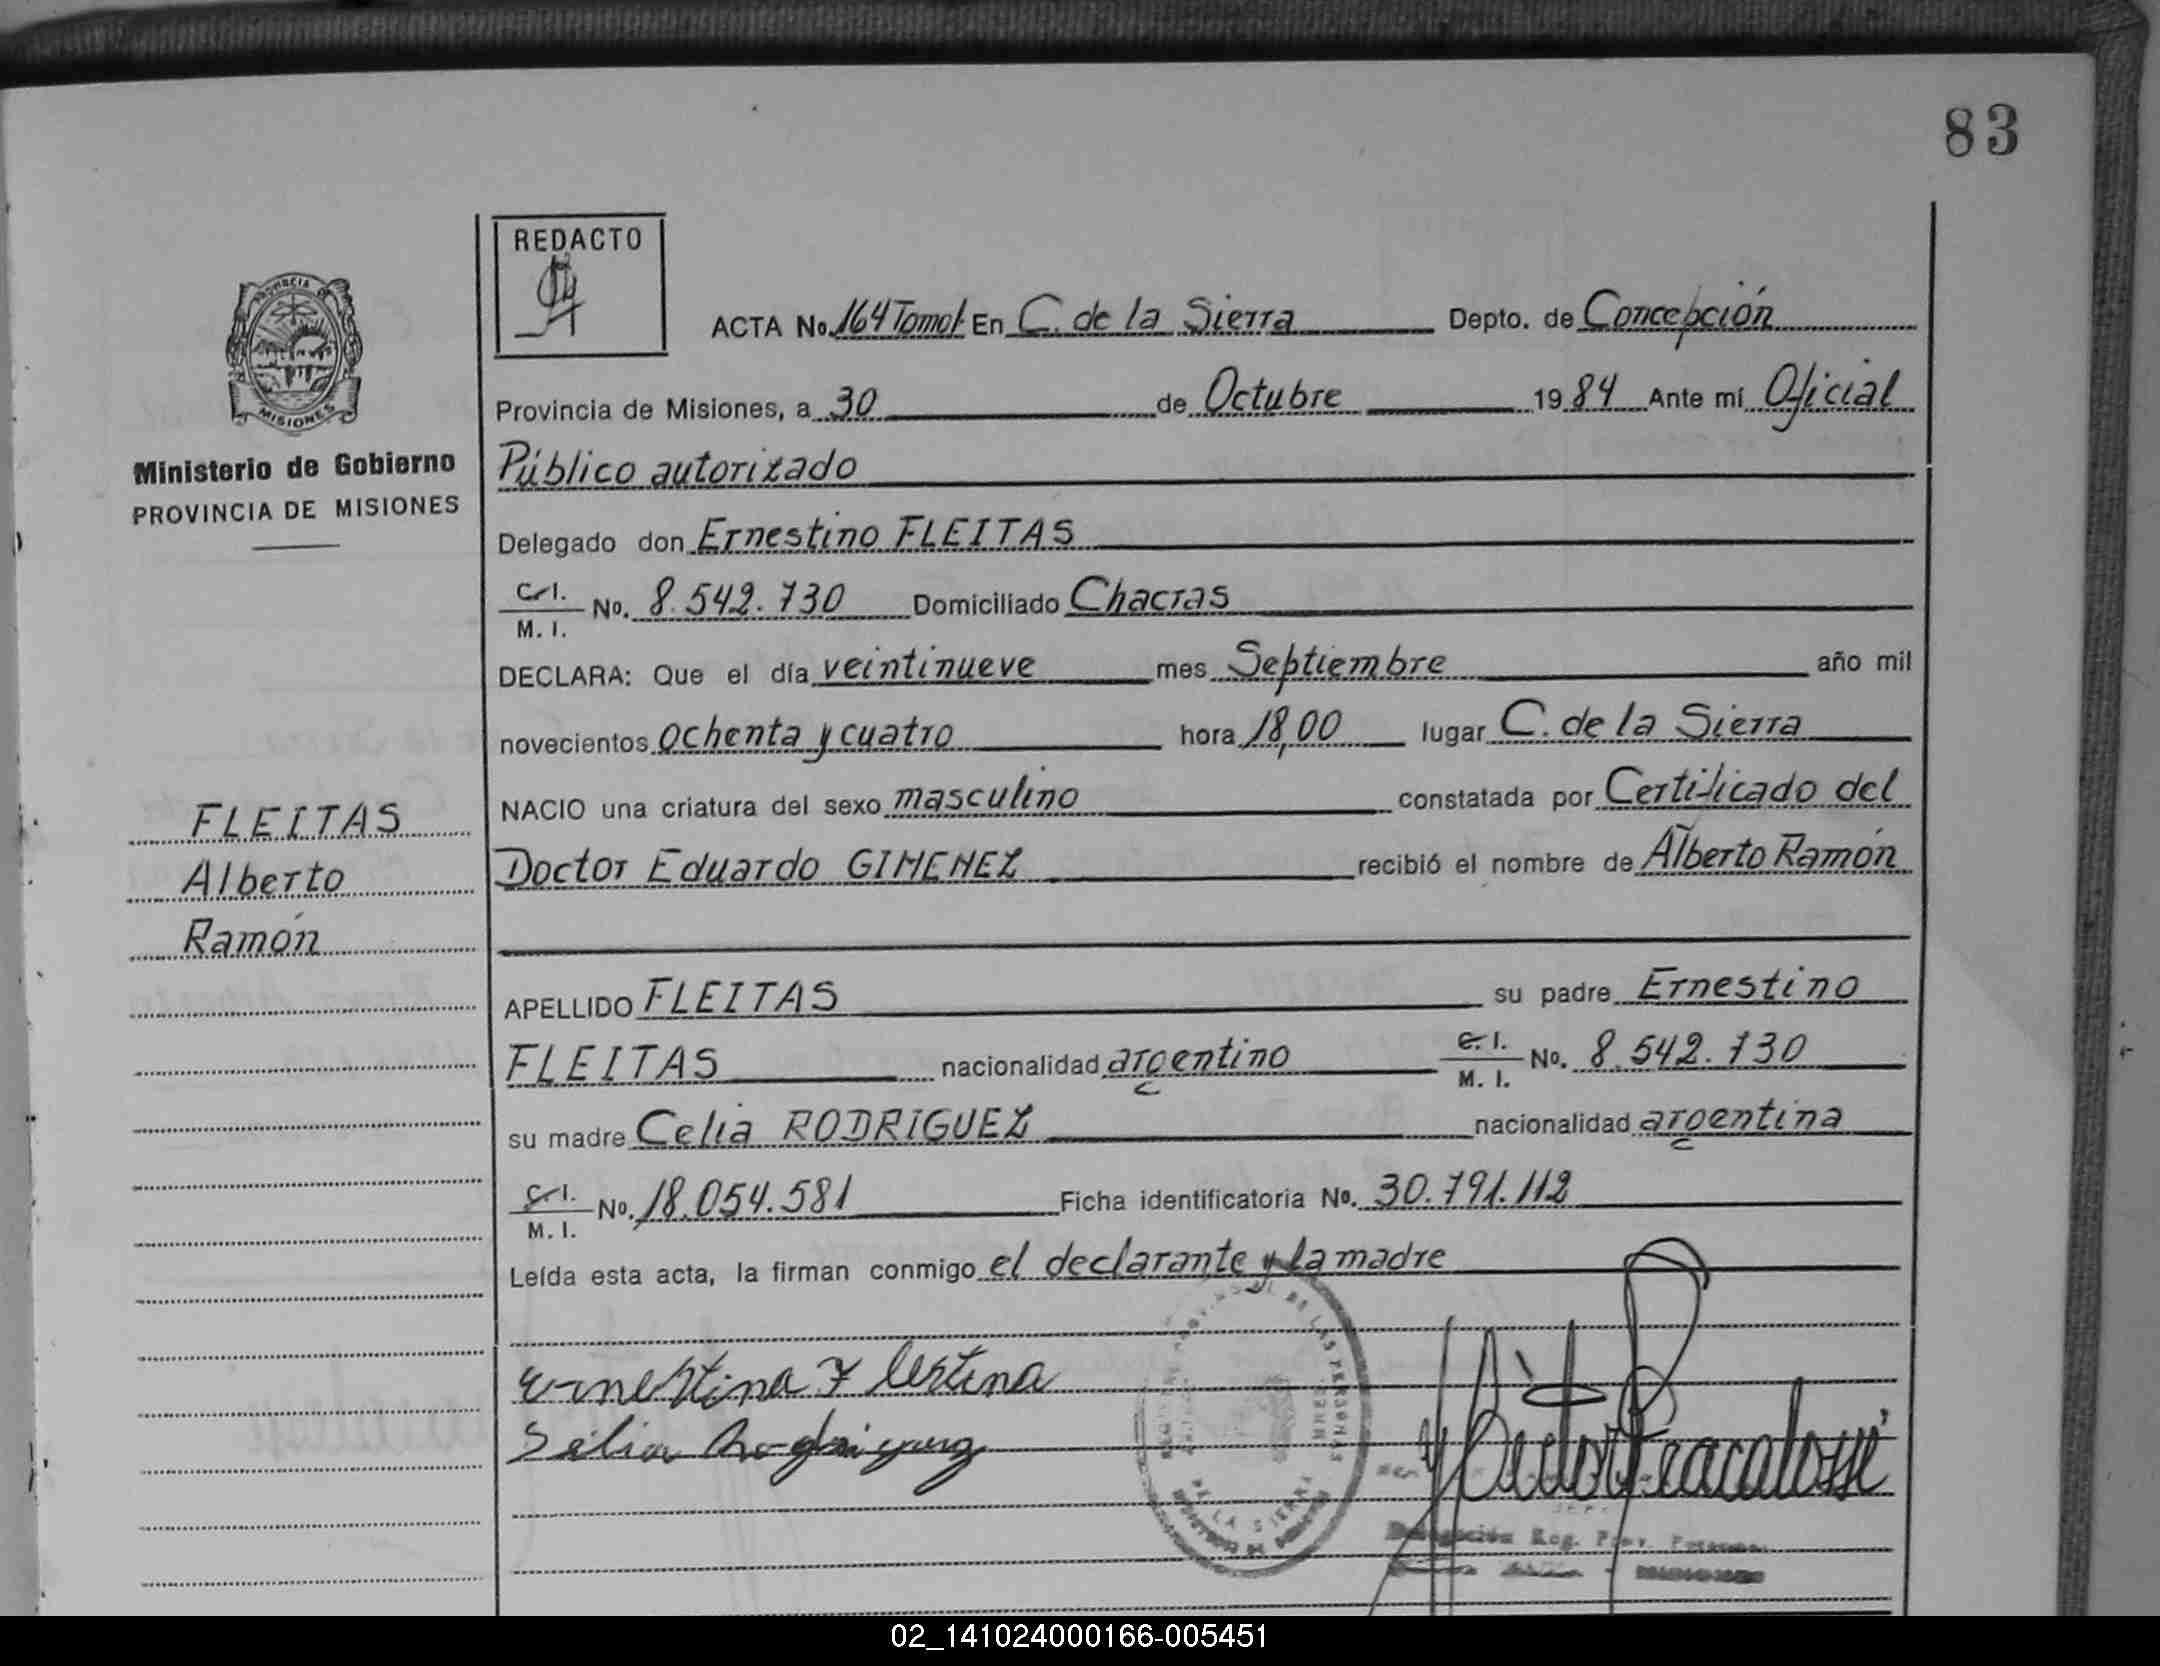 83
REDACTO
ACTA No. 164 Tomo I En C. de la Sierra Depto. de Concepción
PROVINCIA DE MISIONES
Provincia de Misiones, a 30 de Octubre 1984 Ante mí Oficial
Público autorizado
Ministerio de Gobierno
PROVINCIA DE MISIONES
Delegado don Ernestino FLEITAS
C.I. M.I. No. 8.542.730 Domiciliado Chacras
DECLARA: Que el día veintinueve mes Septiembre año mil
novecientos ochenta y cuatro hora 18,00 lugar C. de la Sierra
NACIO una criatura del sexo masculino constatada por Certificado del
FLEITAS
Alberto
Ramón
Doctor Eduardo GIMENEZ recibió el nombre de Alberto Ramón
APELLIDO FLEITAS su padre Ernestino
FLEITAS nacionalidad argentino C.I. M.I. No. 8.542.730
su madre Celia RODRIGUEZ nacionalidad argentina
C.I. M.I. No. 18.054.581 Ficha identificatoria No. 30.791.112
Leída esta acta, la firman conmigo el declarante y la madre
DE LAS PERSONAS
DE LA SIERRA
Delegación Reg. Prov. Personas
02_141024000166-005451